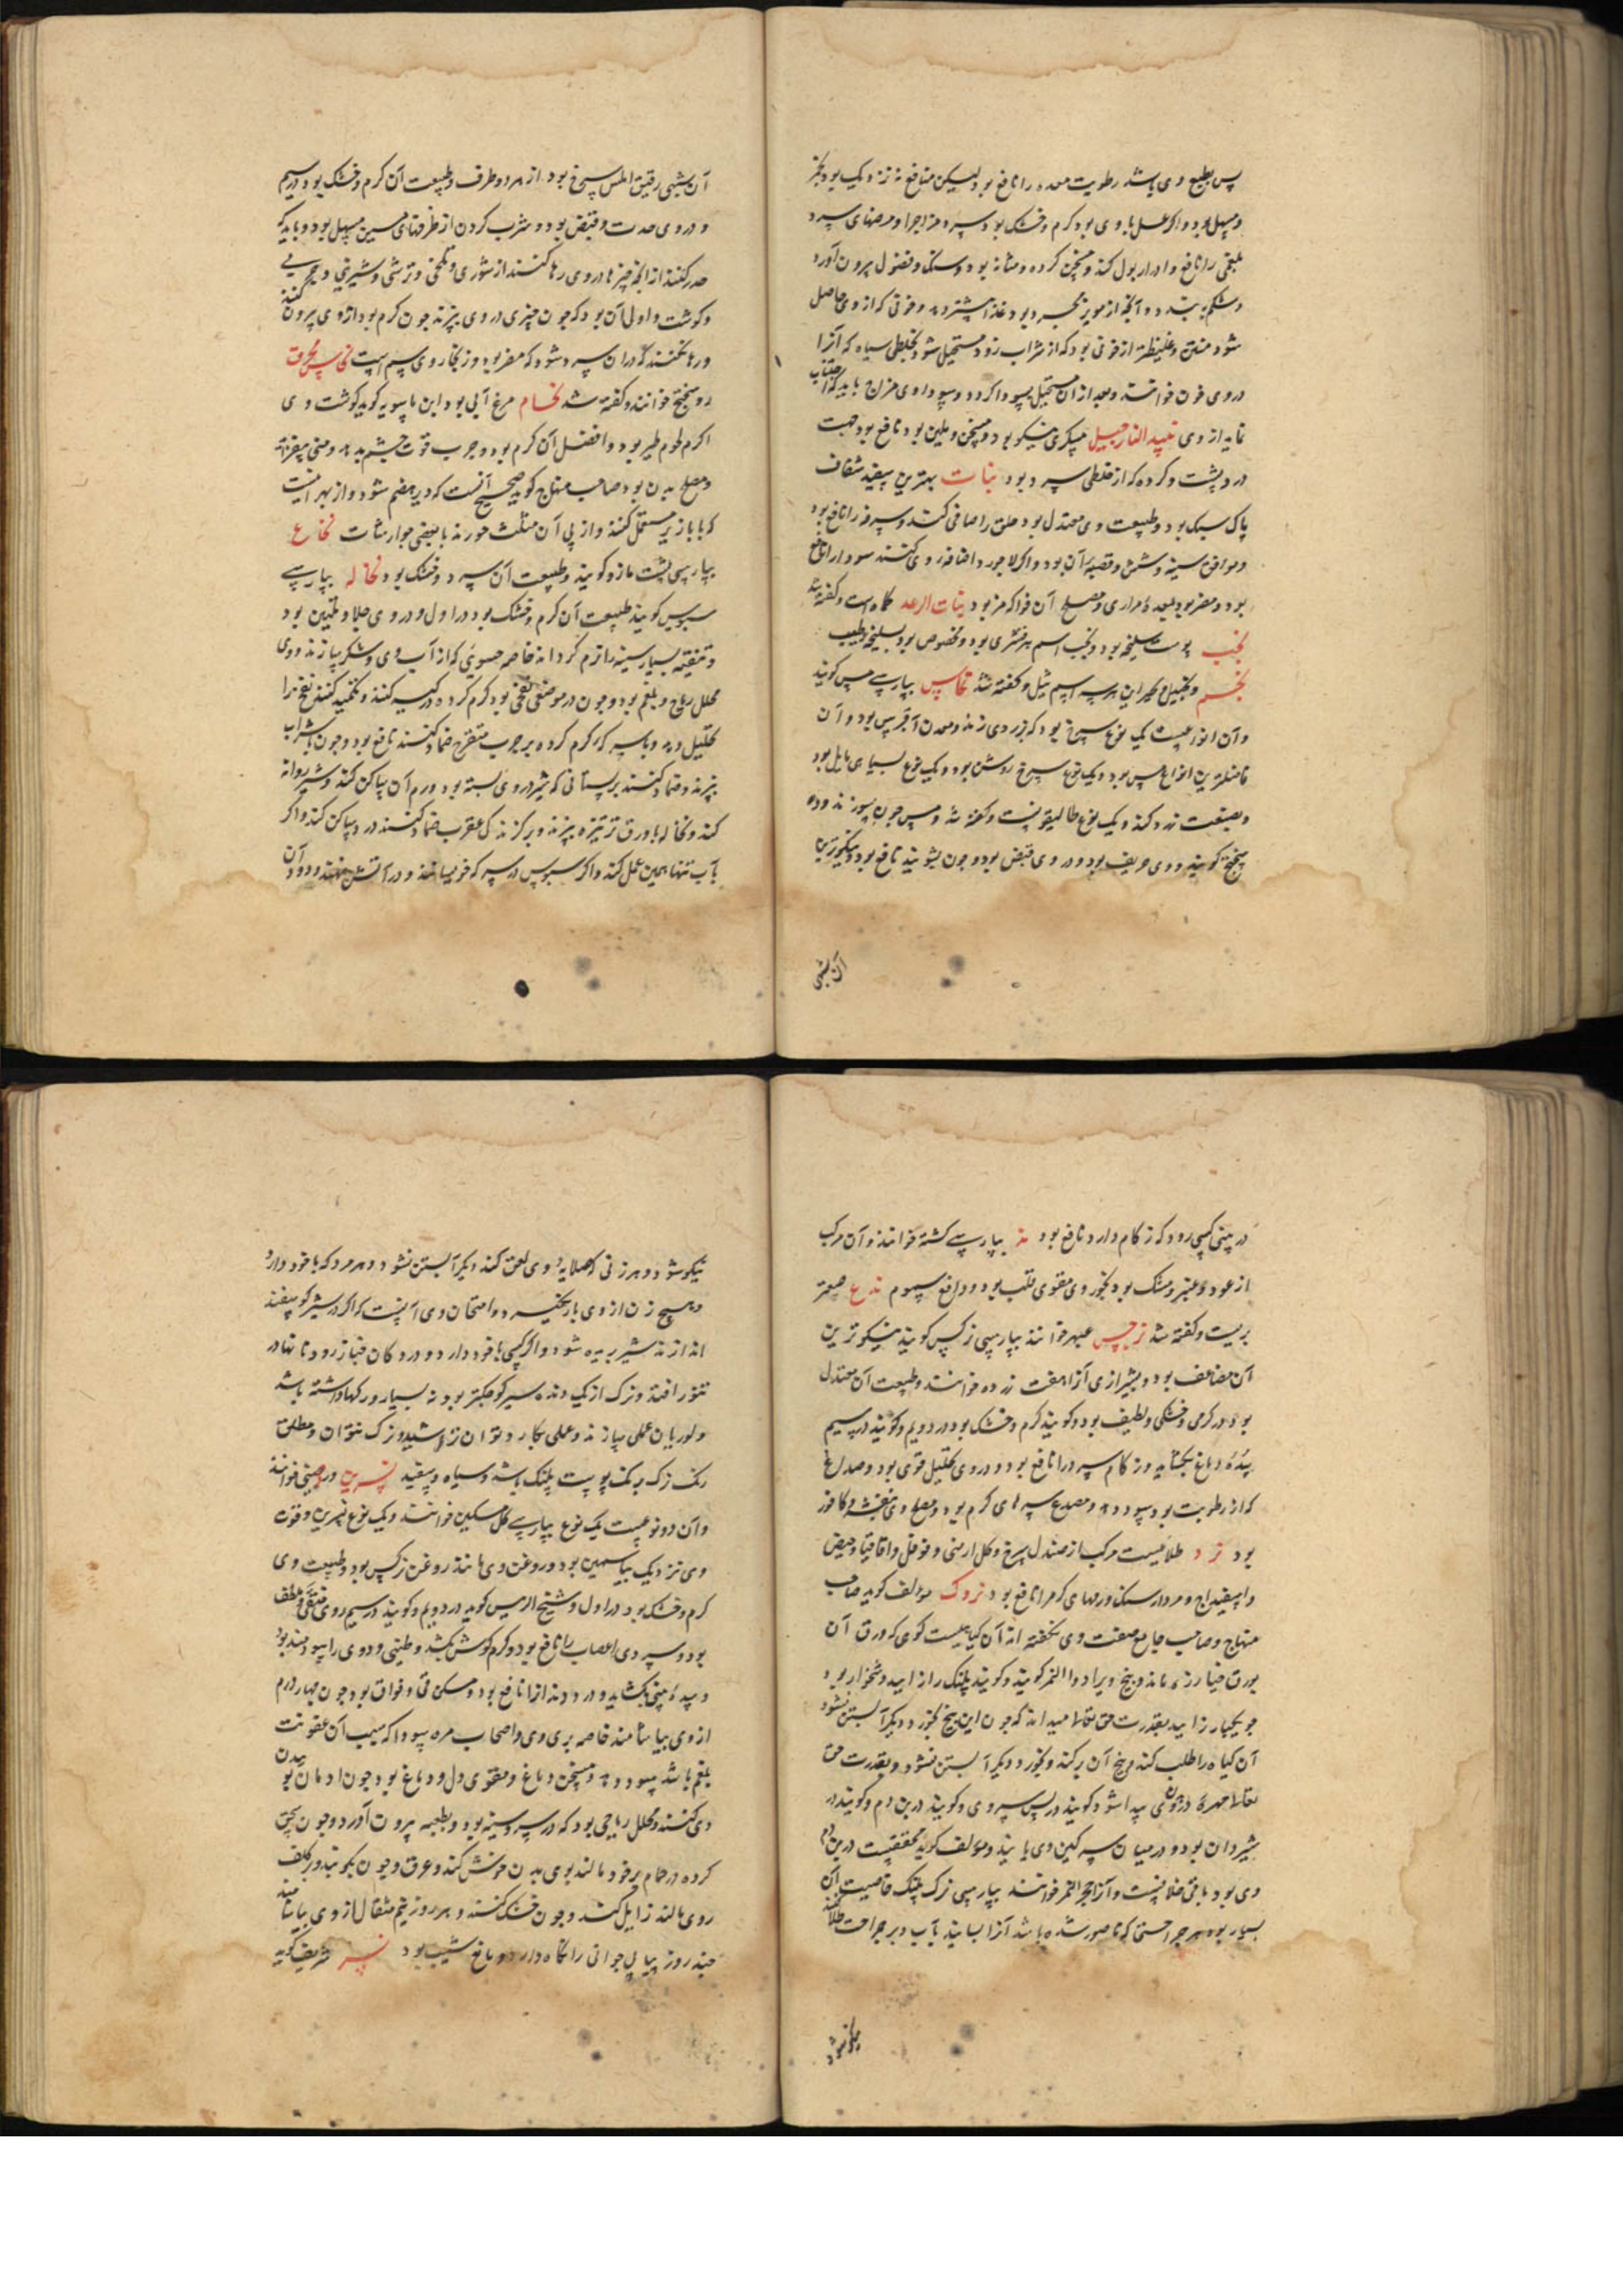 پس بطبع وی باشد رطوبت معده را نافع بود لیکن منافع نزدیک بود بخمر
و مسهل بود و اگر عسل با وی بود گرم و خشک بود پیر و مزاجها و مرضهای سرد
بلغمی را نافع و ادرار بول کند و مسخن گرده و مثانه بود و سنک و فضول بیرون آورد
و شکم ببندد و آنچه از مویز بود غذا بیشتر دهد و خونی که از وی حاصل
شود متین و غلیظتر از خونی بود که از شراب زود مستحیل شود بخلطی سیاه که آنرا
دردی خون خوانند و بعد از آن مستحیل بسودا کردد و سوداوی مزاج باید که اجتناب
نماید از وی نبید النارجیل مسکری نیکو بود و مسخن و ملین بود نافع بود جهت
درد پشت و گرده که از خلطی سرد بود نبات بهترین سفید شفاف
پاک سبک بود و طبیعت وی معتدل بود حلق را صافی کند و سرفه را نافع بود
و موافق سینه و شش و قصبه آن بود و اگر لاجورد اضافه وی کنند سودا را نافع
بود و مضر بود بمعده مراری و مصلح آن فواکه مز بود نبات الرعد کماه است و کفته شد
نجب پوست سلیخه بود و نجب اسم هر قشری بود و مخصوص بود بسلیخه و طیب
نجم و نجیل و نجیر این هر سه اسم ثیل و کفته شد نحاس بپارسی مس کویند
و آن انواعست یک نوع سرخ بود که بزردی زند و معدن آن قبرس بود و آن
فاضلترین انواع مس بود و یک نوع سرخ روشن بود و یک نوع بسیاهی مایل بود
و بصنعت زرد کند و یک نوع طالیقونست و کفته شد و مس چون بسوزند وده
سختج کویند و وی حریف بود و در وی قبض بود و چون بشویند نافع بود و نیکوترین
آن بشبی
آن بشبی رقیق املس سرخ بود از هر دو طرف و طبیعت آن گرم و خشک بود در سیم
و در وی حدت و قبض بود و شرب کردن از ظرفهای مسین مسهل بود و باید که
حذر کنند از آنکه چیزها در وی رها کنند از شوری و تلخی و ترشی و شیرینی و چربی
و کوشت و اولی آن بود که چون چیزی در وی بپزند چون گرم بود از وی بیرون کنند
و رها نکنند که در آن سرد شود که مضر بود و زنجار وی سم است نحاس محرق
روسختج خوانند و کفته شد نحام مرغ آبی بود ابن ماسویه کوید کوشت وی
اکرم لحوم طیر بود و افضل آن گرم بود و چرب قوت جسم بدهد و منی بیفزاید
و مصلح بدن بود صاحب منهاج کوید صحیح آنست که دیر هضم شود و از بهر آنست
که با بازیر مستعمل کنند و از پی آن مثلث خورند با بعضی جوارشات نخاع
بپارسی پشت مازو کویند و طبیعت آن سرد و خشک بود نخاله بپارسی
سبوس کویند طبیعت آن گرم و خشک بود در اول و در وی جلا و تلیین بود
و تنقیه بسیار سینه را نرم گرداند خاصه حسوی که از آب وی و شکر بسازند و وی
محلل ریاح و بلغم بود و چون در موضعی نفخی بود گرم کرده در کیسه کنند و تکمید کنند نفخ را
تحلیل دهد و با سرکه گرم کرده بر جرب متقرح ضماد کنند نافع بود و چون با شراب
بپزند و ضماد کنند بر پستانی که شیر در وی بسته بود ورم آن ساکن کند و شیر روانه
کند و نخاله با ورق تربزه بپزند و بر گزندگی عقرب ضماد کنند درد ساکن کند و اگر
بآب تنها همین عمل کند و اگر سبوس در سرکه خیسانند و در آتش نهند و دود آن
در بینی کسی رود که زکام دارد نافع بود ند بپارسی کشته خوانند و آن مرکب
از عود و عنبر و مشک بود بخور وی مقوی قلب بود و دافع سموم ندع صعتر
بریست و کفته شد نرجس عبهر خوانند بپارسی نرکس کویند نیکوترین
آن مضاعف بود و بشیرازی آنرا هفت زرده خوانند و طبیعت آن معتدل
بود در گرمی و خشکی و لطیف بود و کویند گرم و خشک بود در دویم و کویند در سیم
سده دماغ بکشاید و زکام سرد را نافع بود و در وی تحلیل قوی بود و صداع
که از رطوبت بود سود دهد و مصدع سرهای گرم بود و مصلح وی بنفشه و کافور
بود نرد طلائیست مرکب از صندل سرخ و کل ارمنی و فوفل و اقاقیا و حضض
و اسفیداج و مردارسنک ورمهای گرم را نافع بود نزوک مؤلف کوید صاحب
منهاج و صاحب جامع صفت وی نکفته اند آن کیاهیست کوهی که ورق آن
بورق خیارزه ماند و بیخ ویرا دواء النمر کویند و کویند پلنک را زاییدن دشخوار بود
چو یکبار زایید بقدرت حق تعالی میداند که چون این بیخ بخورد دیگر آبستن نشود
آن کیاه را طلب کند و بیخ آن برکند و بخورد و دیگر آبستن نشود و بقدرت حق
تعالی مهره در وی پیدا شود کویند در پس سر وی و کویند در بن دم و کویند در
شیردان بود و در میان سرکین وی یابند و مؤلف کوید محققست در بن دم
وی بود باقی خلافست و آنرا حجر النمر خوانند بپارسی نزک پلنک خاصیت آن
بسیار بود هر جراحتی که ناصور شده باشد آنرا بسایند بآب و بر جراحت طلا کنند
نیکو شود
نیکو شود و هر زنی که صلایه وی لعق کند دیگر آبستن نشود و هر مرد که با خود دارد
هیچ زن از وی بار نگیرد و امتحان وی آنست که اگر در شیر کوسفند
اندازند شیر بریده شود و اگر کسی با خود دارد و در دکان خباز رود نانها در
تنور افتد و نزک از یک دنه سیر کوچکتر بود نه بسیار و رکها داشته باشد
و لوریان عملی میسازند و عملی بکار د توان تراشید و نزک نتوان و مطلق
رنک نزک برنک پوست پلنک باشد و سیاه و سفید نسرین در چینی خوانند
و آن دو نوعست یک نوع بپارسی کل مسکین خوانند و یک نوع نسرین و قوت
وی نزدیک بیاسمین بود و روغن وی مانند روغن نرکس بود و طبیعت وی
گرم و خشک بود در اول و شیخ الرئیس کوید در دویم و کویند در سیم وی منقی و ملطف
بود و سردی اعصاب را نافع بود و کرم کوش بکشد و طنین و دوی را سودمند بود
و سده بینی بکشاید و درد دندان را نافع بود و مسکن قی و فواق بود چون چهار درم
از وی بیاشامند خاصه بری وی و اصحاب مره سودا که سبب آن عفونت
بلغم باشد سود دهد و مسخن دماغ و مقوی دل و دماغ بود چون ادمان بوییدن
وی کنند و محلل ریاحی بود که در سر و سینه بود و بعطسه بیرون آورد و چون سحق
کرده در حمام بر خود مالند بوی بدن خوش کند و عرق و چون بکوبند و بر کلف
روی مالند زایل کند و چون خشک کنند و هر روز نیم مثقال از وی بیاشامند
چند روز پیاپی جوانی را نگاه دارد و مانع شیب بود نسر شریف کوید